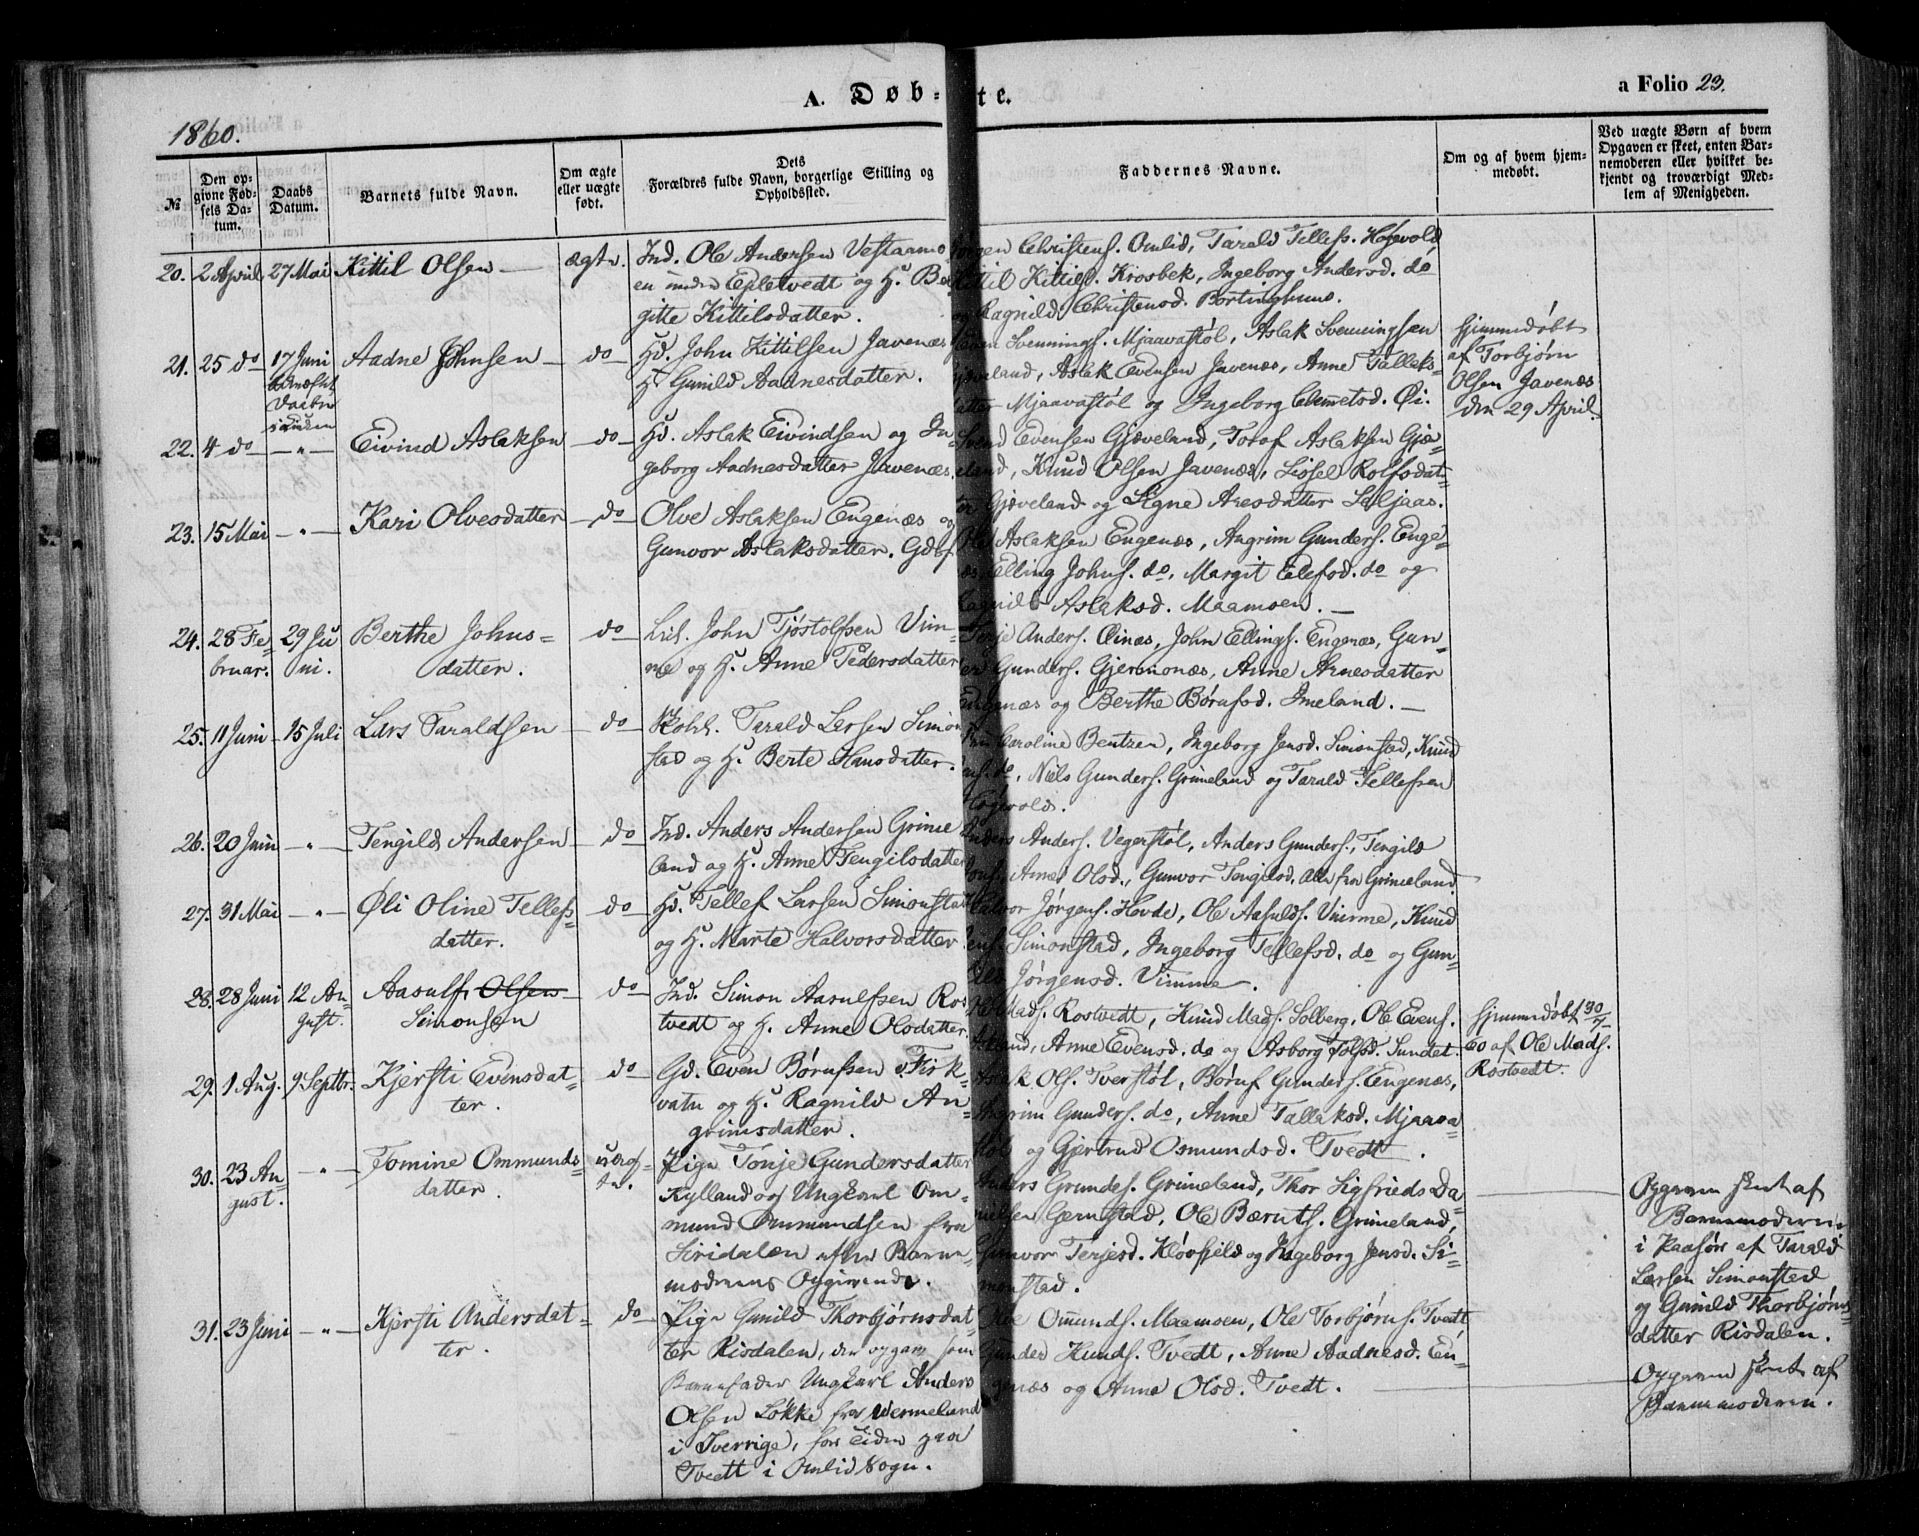 A. Døb- te.
a Folio 23.
1860.
№
Den op-
givne Fød-
sels Da-
tum.
Daabs
Datum.
Barnets fulde Navn.
Om ægte
eller uægte
født.
Dets
Forældres fulde Navn, borgerlige Stilling og
Opholdssted.
Faddernes Navne.
Om og af hvem hjem-
medøbt.
Ved uægte Børn af hvem
Opgaven er skeet, enten Bar-
nemoderen eller hvilket be-
kjendt og troværdigt Med-
lem af Menigheden.
20. 2 April 27 Mai Kittil Olsen — ægte. Ind. Ole Andersen Vestaamo
Eppletvedt og H. Be
gitte Kittilsdatter.
Christens. Omlid, Tarald Tellefs. Høgevold
Kittil Kittils. Krosbek, Ingeborg Andersd. do
og Ragnild Christensd. Bortinghuus.
21. 25 do 17 Juni Aadne Johnsen — do — Gd. John Kittilsen Javenæs
H. Gunild Aadnesdatter.
Even Svennings. Mjaavastøl, Aslak Svenningsen
Gjæveland, Aslak Evensen Javenæs, Anne Tallaks-
datter Mjaavastøl og Ingeborg Clemetsd. Øi.
hjemmedøbt
af Torbjørn
Olsen Javenæs
den 29 April.
22. 4 do — " — Eivind Aslaksen — do — Gd. Aslak Eivindsen og In-
geborg Aadnesdatter Javenæs.
Svend Evensen Gjæveland, Toraf Aslaksen Gjæ-
veland, Knud Olsen Javenæs, Sissel Rolfsdat-
ter Gjæveland og Signe Aresdatter Seljaas.
23. 15 Mai — " — Kari Olvesdatter — do — Olve Aslaksen Engenæs og
Gunvor Aslaksdatter. Gdbf.
Ole Aslaksen Engenæs, Angrim Gunders. Enge-
næs, Elling Johns. do, Margit Eilefsd. do og
Ragnild Aslaksd. Maamoen. —
24. 28 Fe-
bruar. 29 Ju
ni. Berthe Johns-
datter. do — Leil. John Tjøstolfsen Vim-
me og H. Anne Pedersdatter
Terje Anders. Øinæs, John Ellings. Engenæs, Gun-
er Gunders. Gjermonæs, Anne Arnesdatter
Engenæs og Berthe Børufsd. Imeland. —
25. 11 Juni 15 Juli Lars Taraldsen — do — Skoleh. Tarald Larsen Simon
stad og H. Berte Hansdatter.
Caroline Bentzen, Ingeborg Jensd. Simonsted, Knud
Jens. do, Niels Gunders. Grimeland og Tarald Tellefsen
Høgevold.
26. 20 Juni — " — Tengild Andersen — do — Ind. Anders Andersen Grime
land og H. Anne Tengilsdatter
Anders Anders. Vegerstøl, Anders Gunders., Tengild
Jons., Anne Olsd., Gunvor Tengilsd. Alle fra Grimeland
27. 31 Mai — " — Øli Oline Tellefs-
datter. do — Gd. Tellef Larsen Simonstad
og H. Marte Halvorsdatter
Halvor Jørgens. Hovde, Ole Aasulds. Vimme, Knud
Jens. Simonstad, Ingeborg Tellefsd. do og Gun-
ild Jørgensd. Vimme.
28. 28 Juni 12 Au-
gust. Aasulf Olsen
Simonsen do — Ind. Simon Aasulfsen Ros
tvedt og H. Anne Olsdatter.
Ole Mads. Rostvedt, Knud Mads. Solberg, Ole Evens.
Aaland, Anne Evensd. do og Asborg Tolfsd. Sundet.
hjemmedøbt 30/7
60 af Ole Mads.
Rostvedt.
29. 1. Aug. 9. Septbr. Kjersti Evensdat-
ter. do — Gd. Even Børufsen Fisk-
vatn og H. Ragnild An-
grimsdatter.
Aslak Ols. Tverstøl, Børuf Gunders. Engenæs,
Angrim Gunders. do, Anne Tallaksd. Mjaava
støl og Gjertrud Osmundsd. Tvedt.
30. 23 Au-
gust. — " — Tomine Ommunds-
datter. uæg-
te. Pige Tonje Gundersdatter
Kylland og Ungkarl Om-
mund Ommundsen fra
Siridalen efter Barne-
moderens Opgivende.
Anders Grundes. Grimeland, Thor Sigfrieds Da-
nielsen Gernstad, Ole Bæruts. Grimeland,
Gunvor Terjesd. Kløvfjeld og Ingeborg Jensd. Si-
monstad.
Opgaven skeet af
Barnemoderen
i Paahør af Tarald
Larsen Simonsted
og Gunild Thorbjørns-
datter Risdalen.
31. 23 Juni — " — Kjersti Andersdat-
ter. do — Pige Gunild Thorbjørnsdat-
ter Risdalen, der opgav som
Barnefader Ungkarl Anders
Olsen Løkke fra Wermeland
i Sverrige, for Tiden paa
Tvedt i Omlid Sogn.
Ole Omunds. Maamoen, Ole Torbjørns. Tvedt
Gunder Knuds. Tvedt, Anne Aadnesd. En-
genæs og Anne Olsd. Tvedt.
Opgaven skeet af
Barnemoderen.